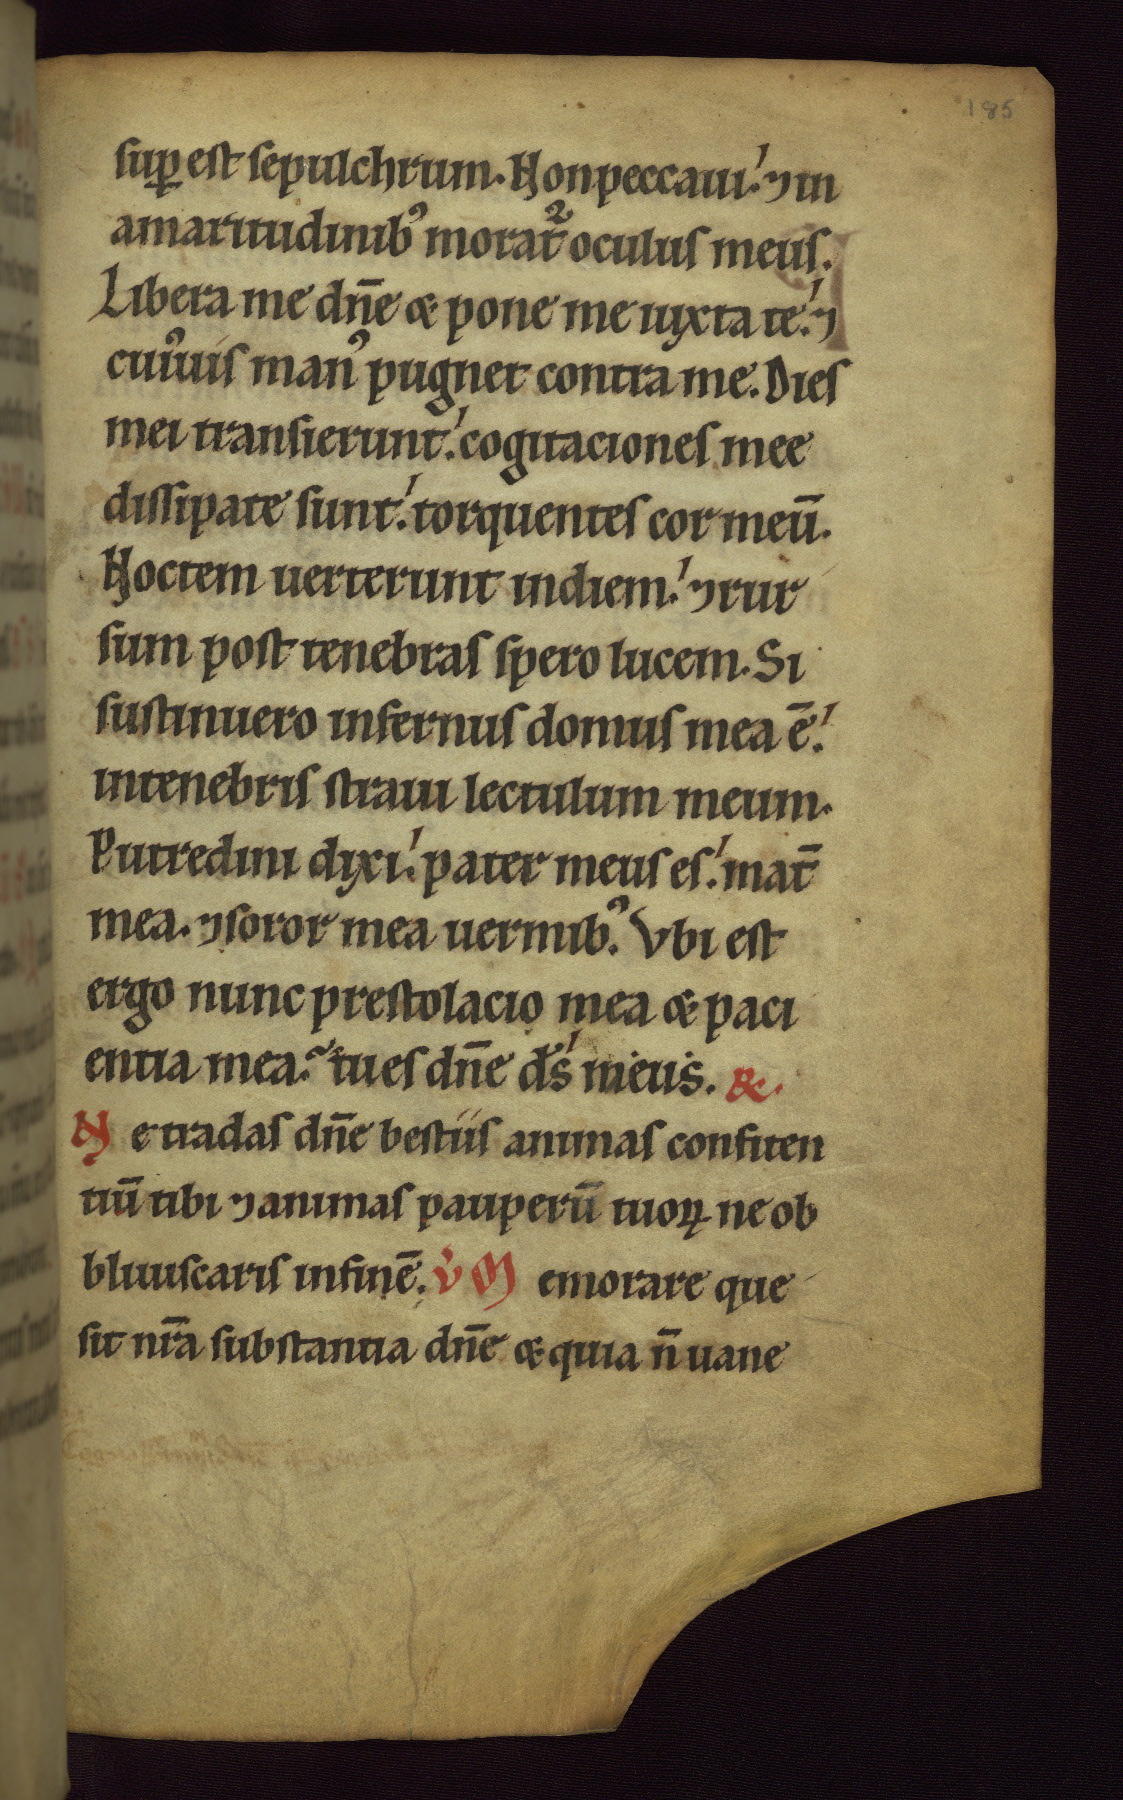 185
sup̲ est sepulchrum. Non peccaui. ⁊ in
amaritudinibꝰ morat᷑ oculus meus.
Libera me dn̄e & pone me iuxta te. ⁊
cuiꝰuis manꝰ pugnet contra me. Dies
mei transierunt. cogitaciones mee
dissipate sunt. torquentes cor meū.
Noctem uerterunt in diem. ⁊ rur
sum post tenebras spero lucem. Si
sustinuero infernus domus mea ē.
in tenebris straui lectulum meum.
Putredini dixi. pater meus es. mat̄
mea. ⁊ soror mea uermibꝰ. Vbi est
ergo nunc prestolacio mea & paci
entia mea. tu es dn̄e ds̄ meus. &.
Ne tradas dn̄e bestiis animas confiten
tiū tibi ⁊ animas pauperū tuoꝝ ne ob
bliuiscaris in finē. V̊ Memorare que
sit nr̄a substantia dn̄e & quia n̄ uane